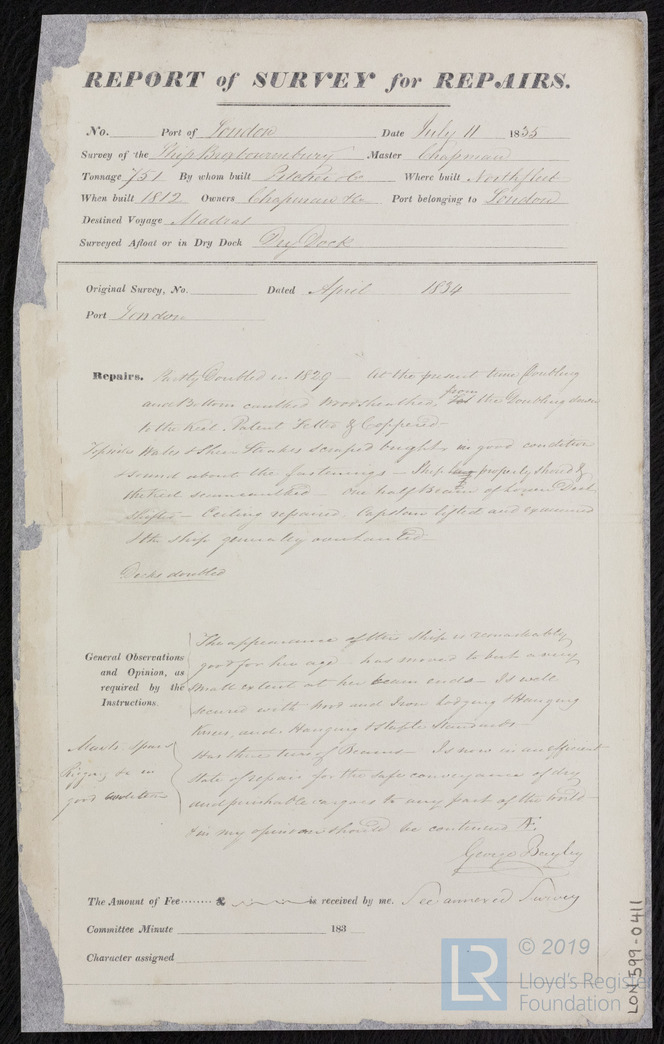 REPORT of SURVEY for REPAIRS.
No. Port of London Date July 11 1835
Survey of the Ship Broxbournebury Master Chapman
Tonnage 751 By whom built Pitcher &c Where built Northfleet
When built 1812 Owners Chapman &c Port belonging to London
Destined Voyage Madras
Surveyed Afloat or in Dry Dock Dry Dock
Original Survey, No. Dated April 1834
Port London
Repairs. Partly Doubled in 1829 — At the present time Doubling
and Bottom caulked Wood sheathed from the Doubling down
to the keel. Patent Felted & Coppered —
Topsides Wales & Sheer Strakes scraped bright, in good condition
& sound about the fastenings — Ship properly shored &
— One half Beam of Lower Deck
shifted — Ceiling repaired, Capstan lifted and examined
& the ship generally overhauled —
Decks doubled
General Observations
and Opinion, as
required by the
Instructions.
The appearance of this ship is remarkably
good for her age — has moved to but a very
small extent at her beam ends — Is well
secured with Wood and Iron Lodging & Hanging
Knees, and Hanging & Staple Standards —
Has three tiers of Beams — Is now in an efficient
state of repair for the safe conveyance of dry
and perishable cargoes to any part of the world
& in my opinion should be continued Æ.
George Bayley
Masts Spars
Rigging &c in
good condition
The Amount of Fee........ £ is received by me. See annexed Survey
Committee Minute 183
Character assigned
LON 599-0411
LR
© 2019
Lloyd's Register
Foundation